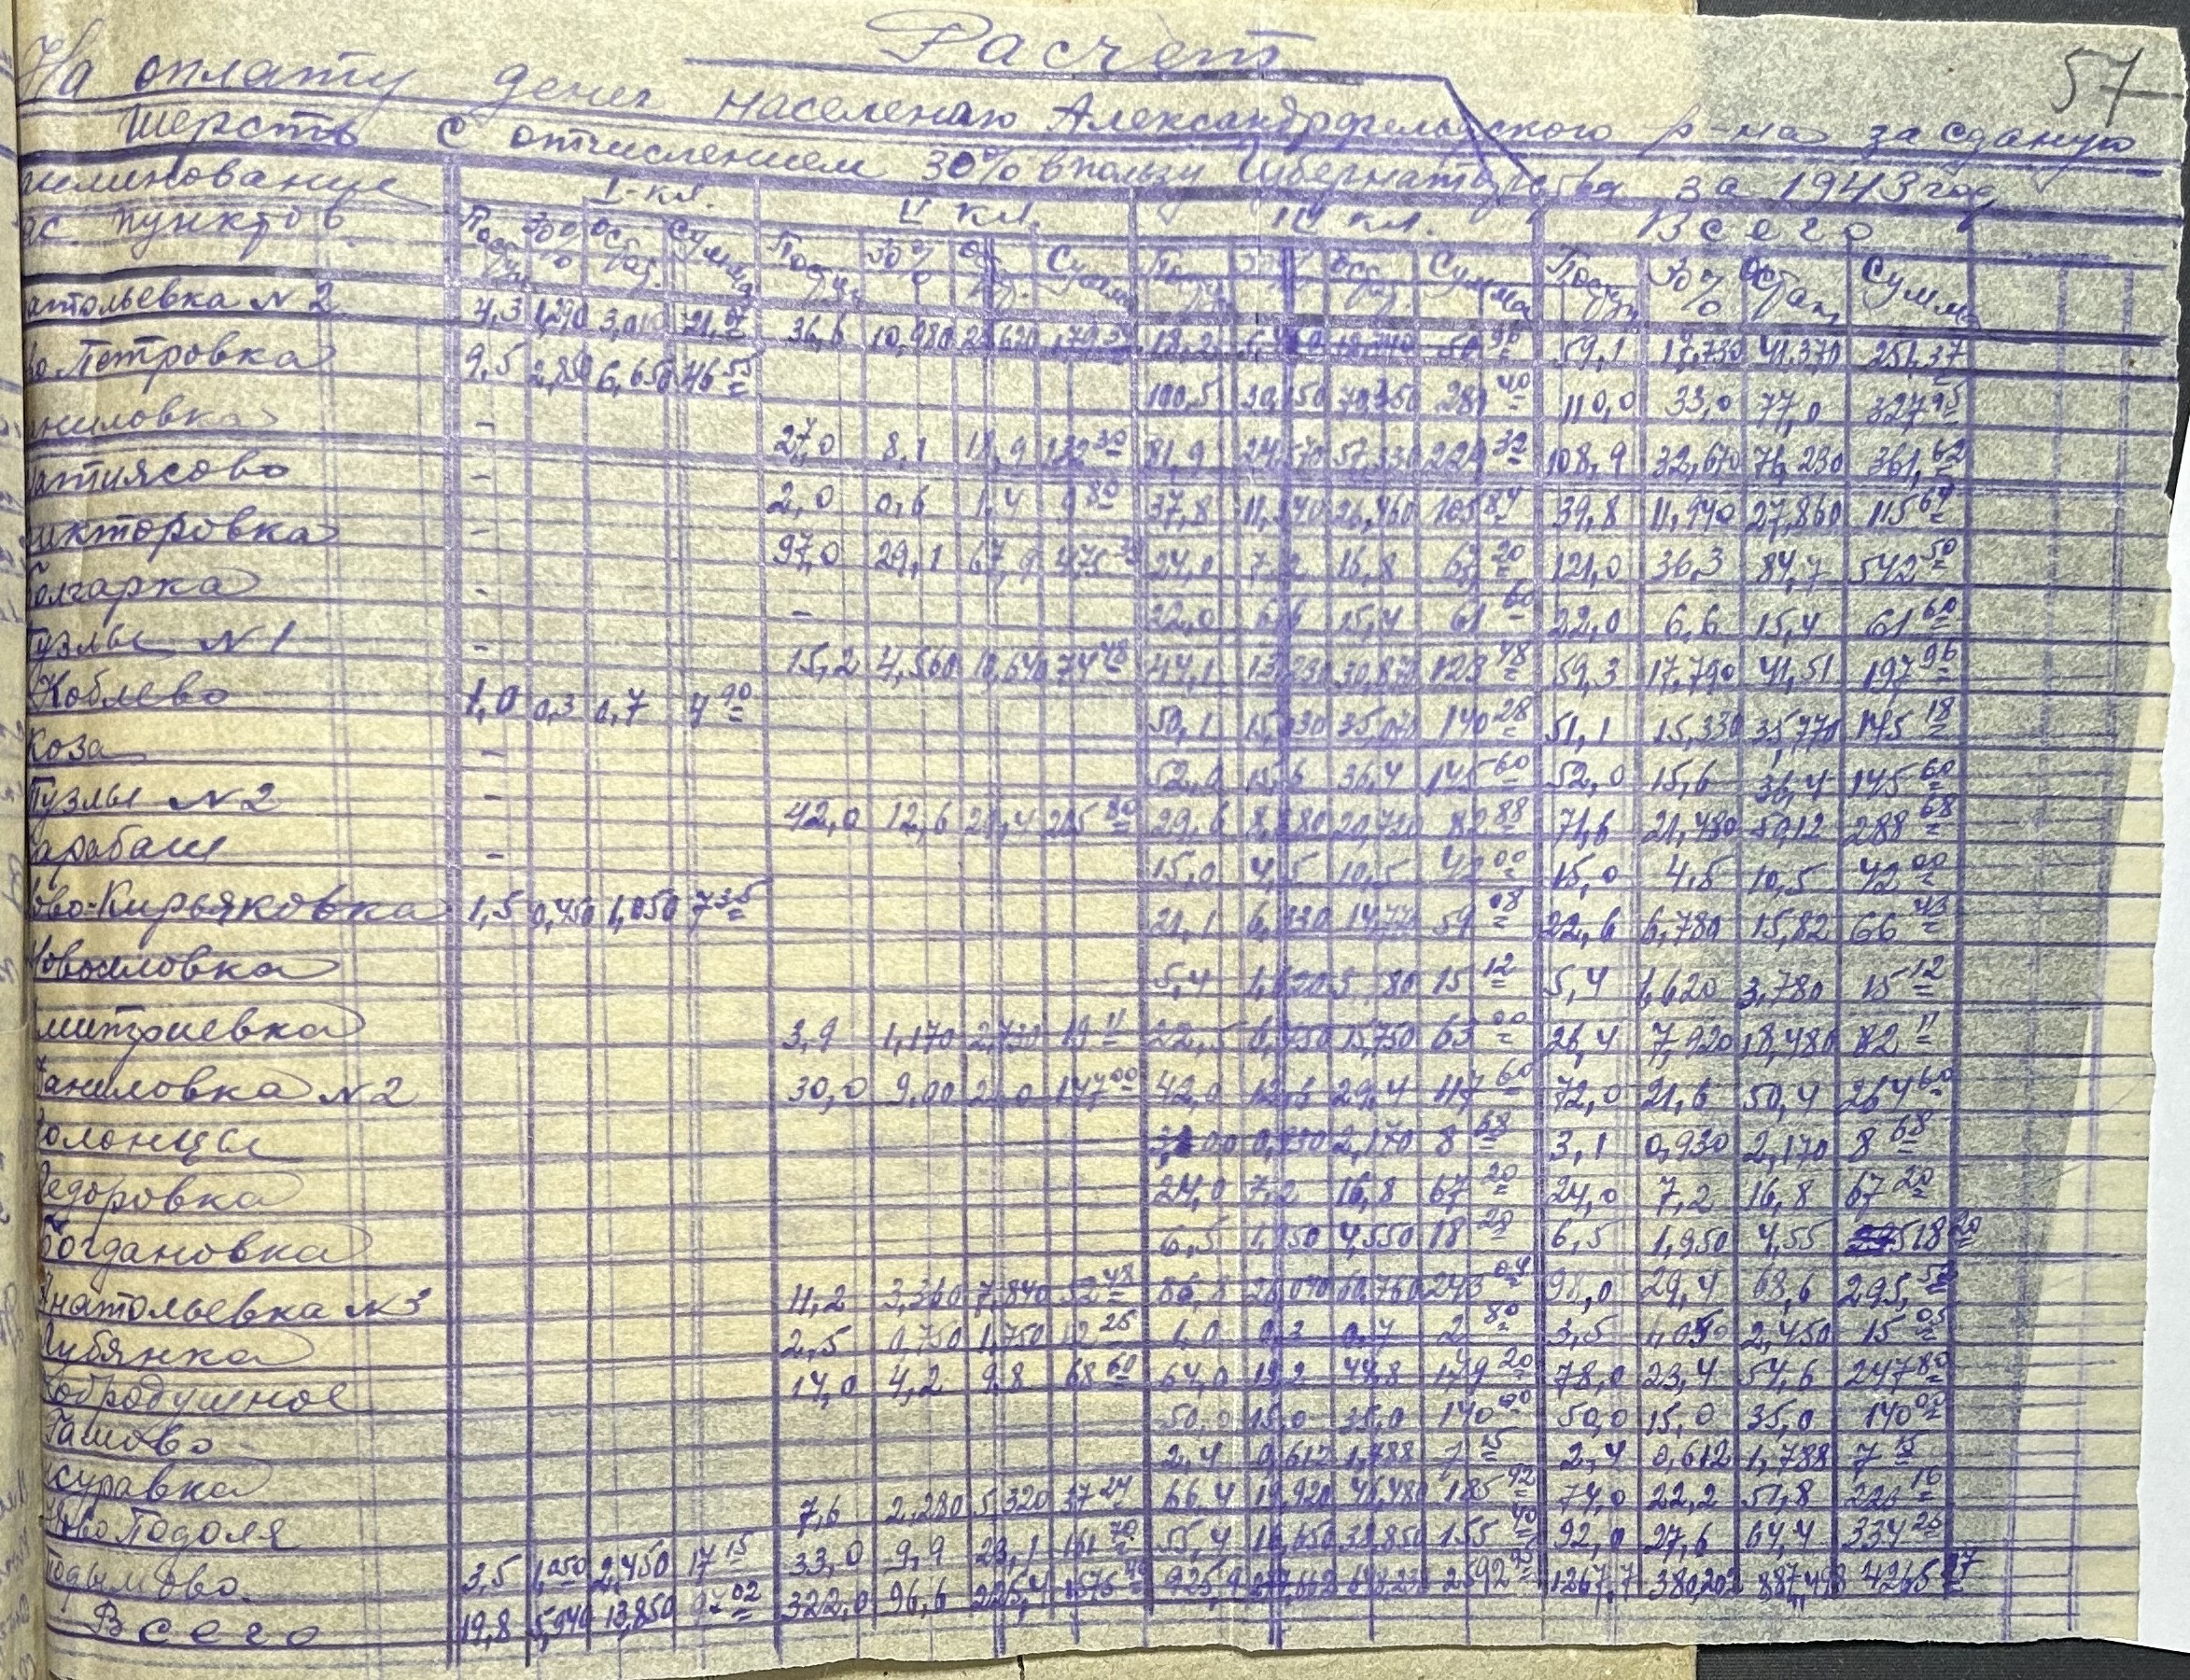 57
Расчет
На оплату денег населению Александрфельдского р-на за сданую
шерсть с отчислением 30% в пользу Губернаторства за 1943 год
именование I-кл. II кл. III кл. Всего
ас. пунктов Поступ. 30% Остат. Сумма Поступ. 30% Сумма Сумма Поступ. 30% Остат. Сумма
атольевка N 2 4,3 1,290 3,010 21,07 36,6 10,980 179 18,2 96 59,1 17,730 41,370 251,37
во Петровка 9,5 2,850 6,650 46 55 100,5 30,150 70,350 281 40 110,0 33,0 77,0 327 95
ниловка - 27,0 8,1 18,9 132 30 81,9 24,570 57,330 229 32 108,9 32,670 76,230 361,62
атиясово - 2,0 0,6 1,4 9 80 37,8 11,340 26,460 105 84 39,8 11,940 27,860 115 64
икторовка - 97,0 29,1 67,9 475 30 24,0 7,2 16,8 67 20 121,0 36,3 84,7 542 50
олгарка - - 22,0 6,6 15,4 61 60 22,0 6,6 15,4 61 60
Тузлы N 1 - 15,2 4,560 10,640 74 48 44,1 13,230 30,870 123 48 59,3 17,790 41,51 197 96
Коблево 1,0 0,3 0,7 4 90 50,1 15,030 35,070 140 28 51,1 15,330 35,770 145 18
Коза - 52,0 15,6 36,4 145 60 52,0 15,6 36,4 145 60
Тузлы N 2 - 42,0 12,6 29,4 205 80 29,6 8,880 20,720 82 88 71,6 21,480 50,12 288 68
арабаш - 15,0 4,5 10,5 42 00 15,0 4,5 10,5 42 00
ово-Кирьяковка 1,5 0,450 1,050 7 35 21,1 6,330 14,77 59 08 22,6 6,780 15,82 66 43
Новоиловка 5,4 1,620 80 15 12 5,4 1,620 3,780 15 12
митриевка 3,9 1,170 2,730 19 11 22,5 6,750 15,750 63 00 26,4 7,920 18,480 82 11
аниловка N 2 30,0 9,00 21,0 147 00 42,0 12,6 29,4 117 60 72,0 21,6 50,4 264 60
олонцы 0,930 2,170 8 68 3,1 0,930 2,170 8 68
едоровка 24,0 7,2 16,8 67 20 24,0 7,2 16,8 67 20
Богдановка 6,5 1,950 4,550 18 20 6,5 1,950 4,55 18 20
Анатольевка N 3 11,2 3,360 7,840 52 48 86,8 26,040 60,760 243 04 98,0 29,4 68,6 295,52
Лубянка 2,5 0,750 1,750 12 25 1,0 0,3 0,7 2 80 3,5 1,050 2,450 15 05
обродушное 14,0 4,2 9,8 68 60 64,0 19,2 44,8 179 20 78,0 23,4 54,6 247 80
Ташово 50,0 15,0 35,0 140 00 50,0 15,0 35,0 140 00
суравка 2,4 0,612 1,788 7 15 2,4 0,612 1,788 7 15
Ново Подоля 7,6 2,280 5,320 37 24 66,4 19,920 46,480 185 92 74,0 22,2 51,8 223 16
одымово. 3,5 1,050 2,450 17 15 33,0 9,9 23,1 161 70 55,4 16,650 38,850 155 40 92,0 27,6 64,4 334 25
Всего 19,8 5,940 13,850 97 02 322,0 96,6 225,4 1575 925,9 2592 1267,7 380,202 887,498 4265 27